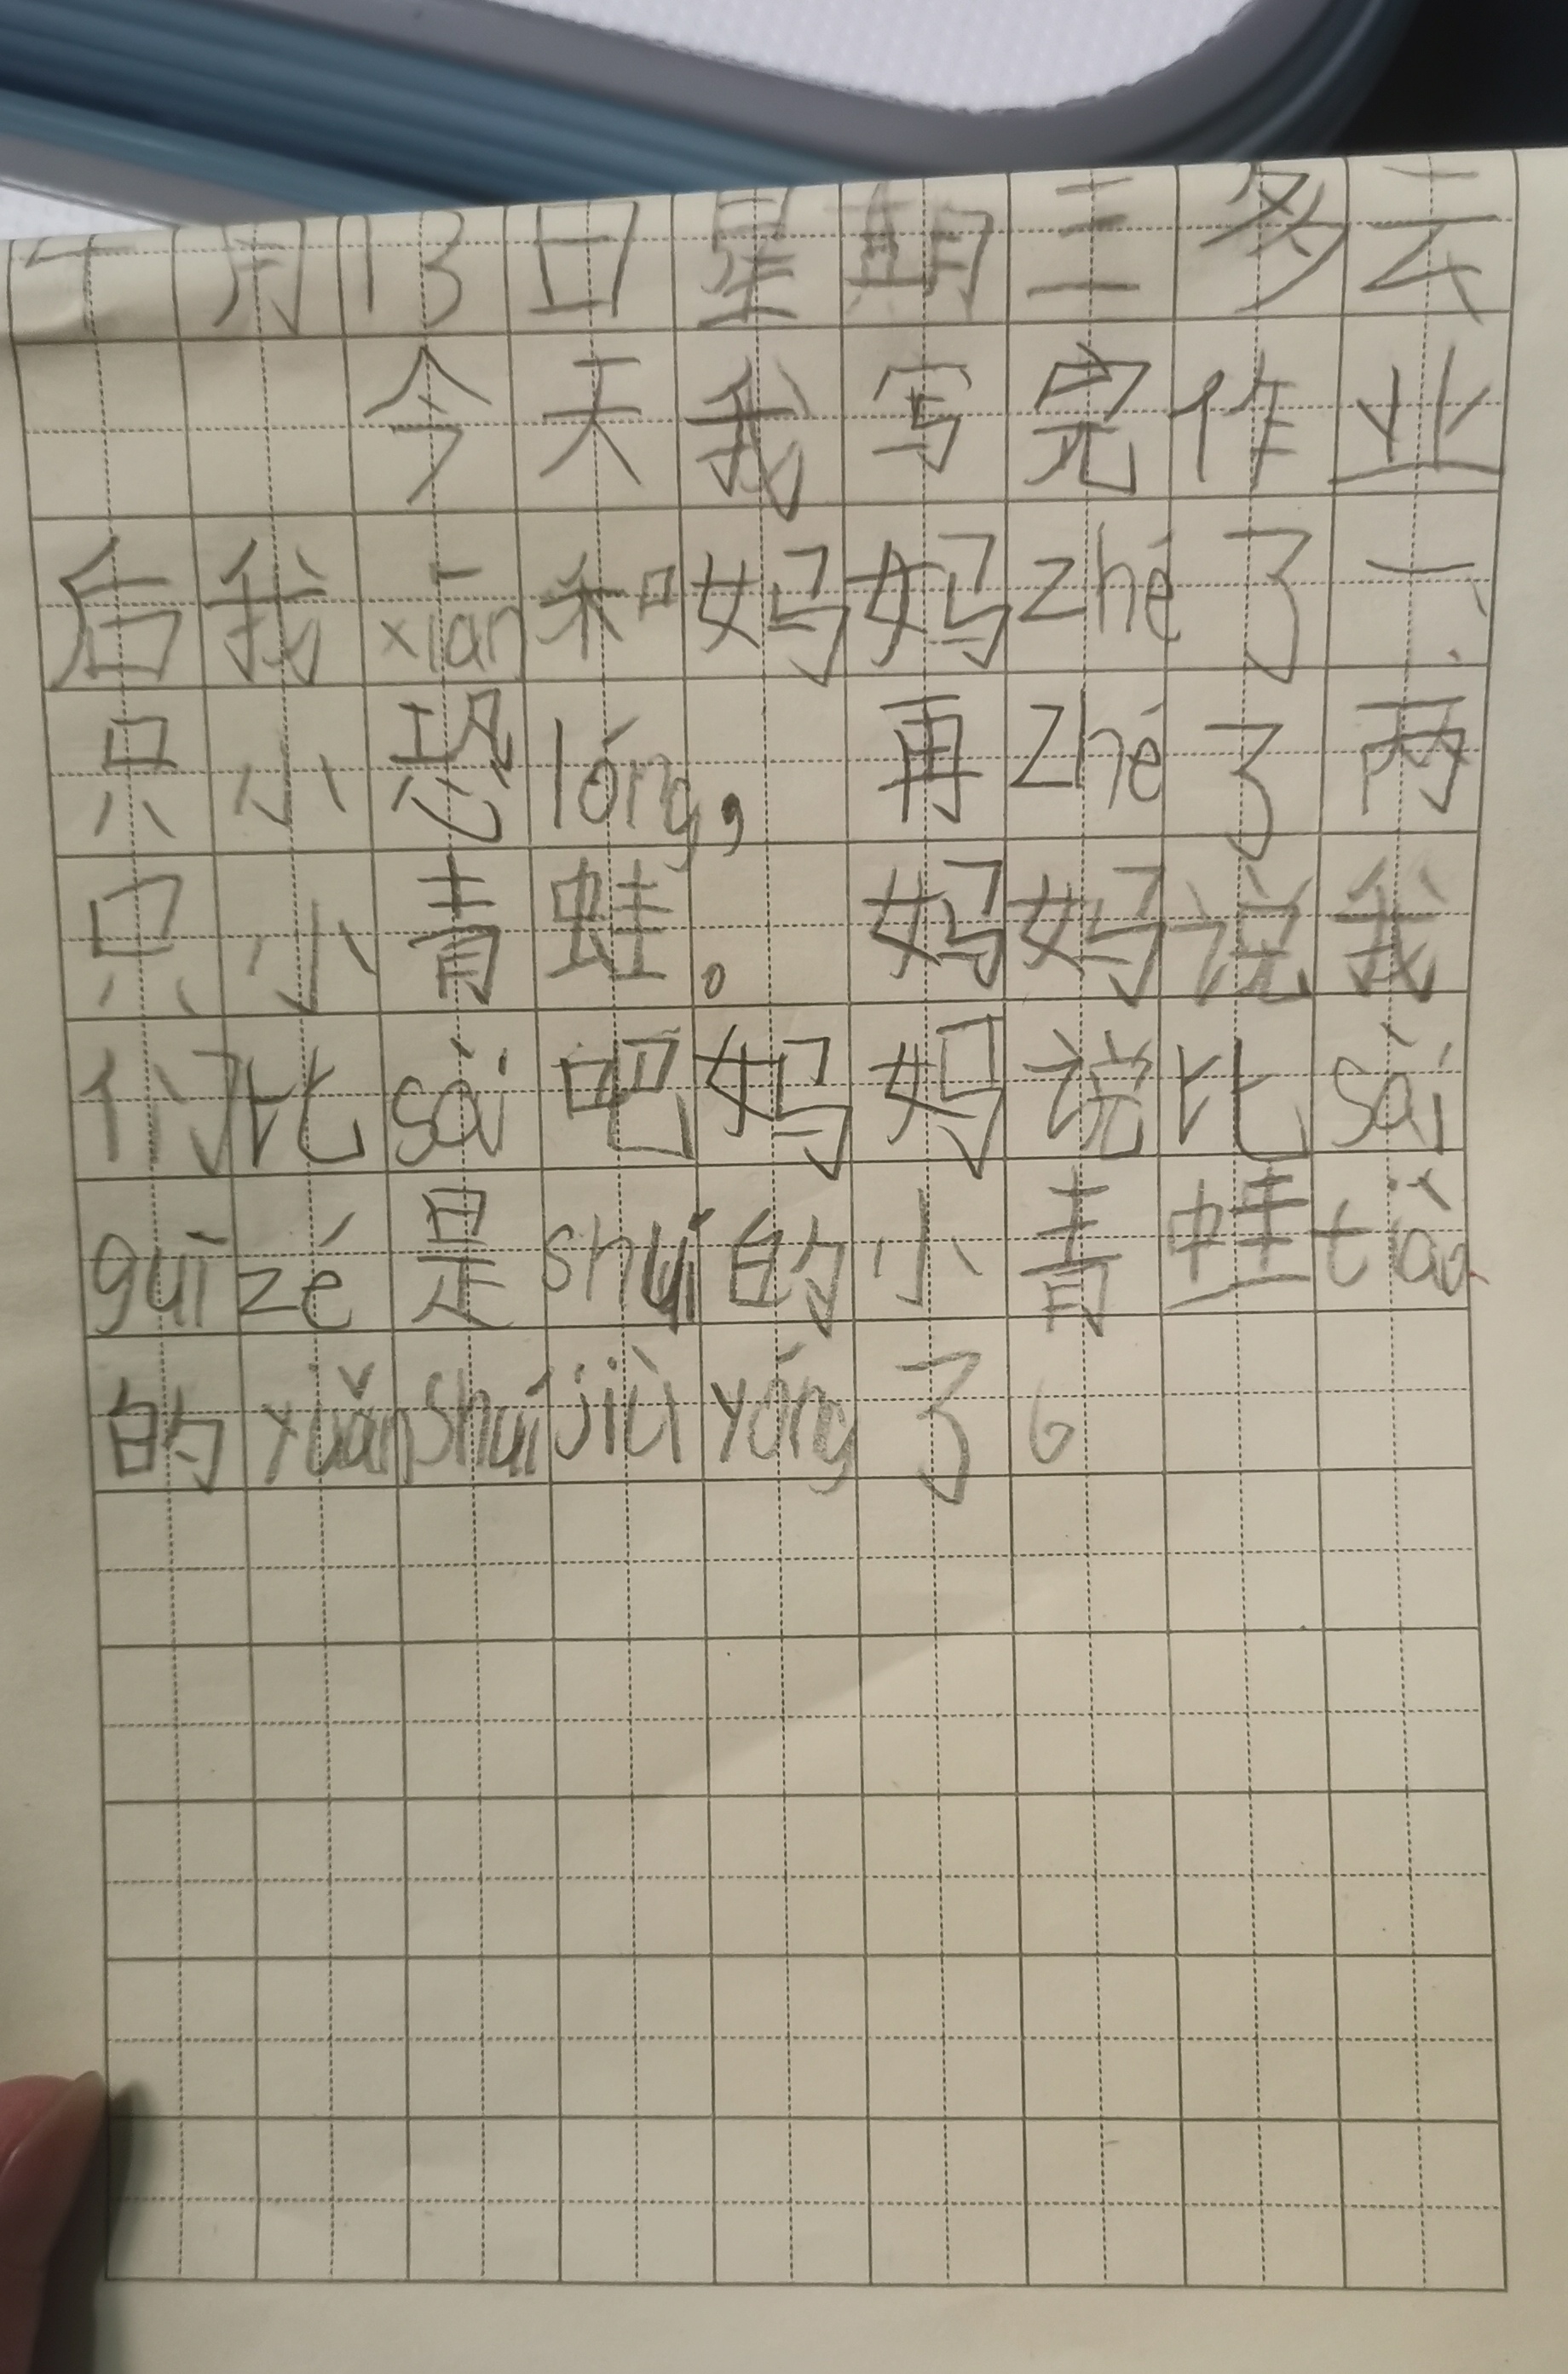 十月13日星期三多云
今天我写完作业
后我xiān和妈妈zhé了一
只小恐lóng，再zhé了两
只小青蛙。妈妈说我
们比sài吧妈妈说比sài
guīzé是shuí的小青蛙tiào
的yuǎnshuíjiùyíng了。